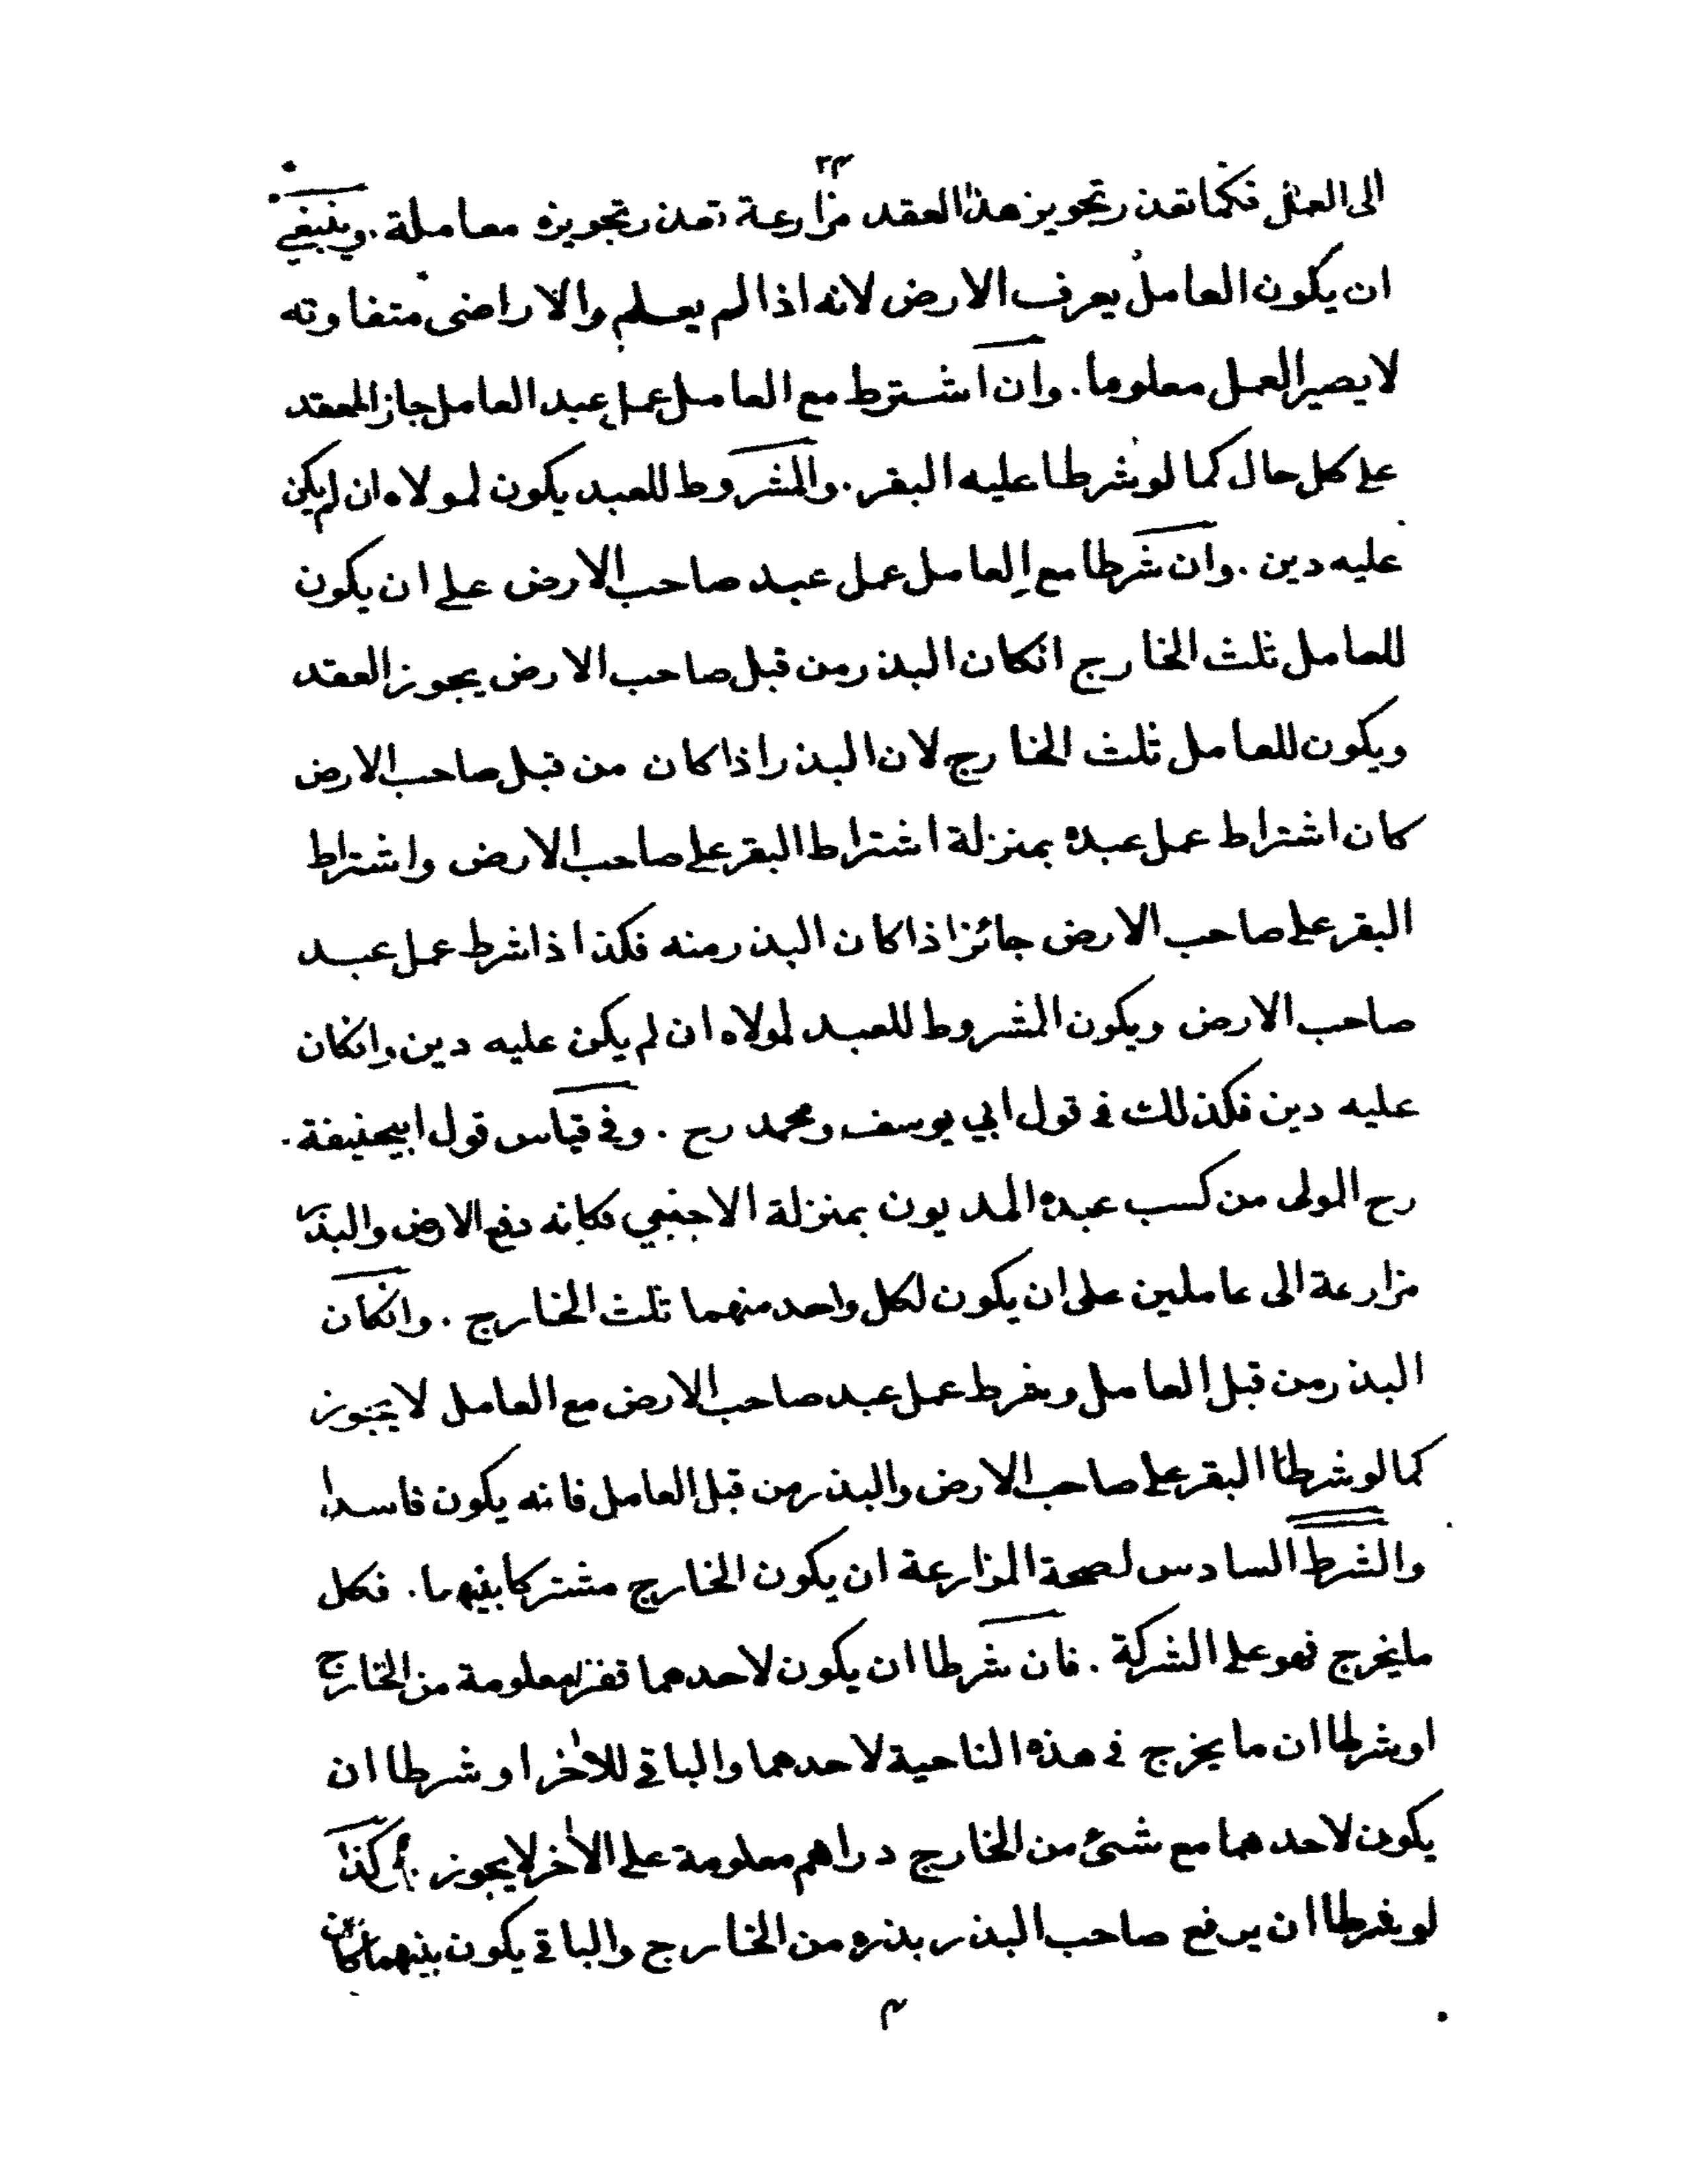 ٢٤
الى العمل فكما تعذر تجويز هذا العقد مزارعة تعذر تجويزه معاملة . وينبغي
ان يكون العامل يعرف الارض لانه اذا لم يعلم والاراضى متفاوته
لا يصير العمل معلوما . وان اشترط مع العامل عمل عبد العامل جاز العقد
على كل حال كما لو شرطا عليه البقر . والمشروط للعبد يكون لمولاه ان لم يكن
عليه دين . وان شرطا مع العامل عمل عبد صاحب الارض على ان يكون
للعامل ثلث الخارج انكان البذر من قبل صاحب الارض يجوز العقد
ويكون للعامل ثلث الخارج لان البذر اذا كان من قبل صاحب الارض
كان اشتراط عمل عبده بمنزلة اشتراط البقر على صاحب الارض واشتراط
البقر على صاحب الارض جائز اذا كان البذر منه فكذا اذا شرط عمل عبد
صاحب الارض ويكون المشروط للعبد لمولاه ان لم يكن عليه دين وانكان
عليه دين فكذلك فى قول ابي يوسف ومحمد رح . وفى قياس قول ابيحنيفة .
رح المولى من كسب عبده المديون بمنزلة الاجنبي فكانه دفع الارض والبذر
مزارعة الى عاملين على ان يكون لكل واحد منهما ثلث الخارج . وانكان
البذر من قبل العامل وشرط عمل عبد صاحب الارض مع العامل لا يجوز
كما لو شرطا البقر على صاحب الارض والبذر من قبل العامل فانه يكون فاسدا
والشرط السادس لصحة المزارعة ان يكون الخارج مشتركا بينهما . فكل
ما يخرج فهو على الشركة . فان شرطا ان يكون لاحدهما قفزا معلومة من الخارج
او شرطا ان ما يخرج فى هذه الناحية لاحدهما والباقى للاخر او شرطا ان
يكون لاحدهما مع شئ من الخارج دراهم معلومة على الاخر لا يجوز . وكذا
لو شرطا ان يرفع صاحب البذر بذره من الخارج والباقى يكون بينهما كان